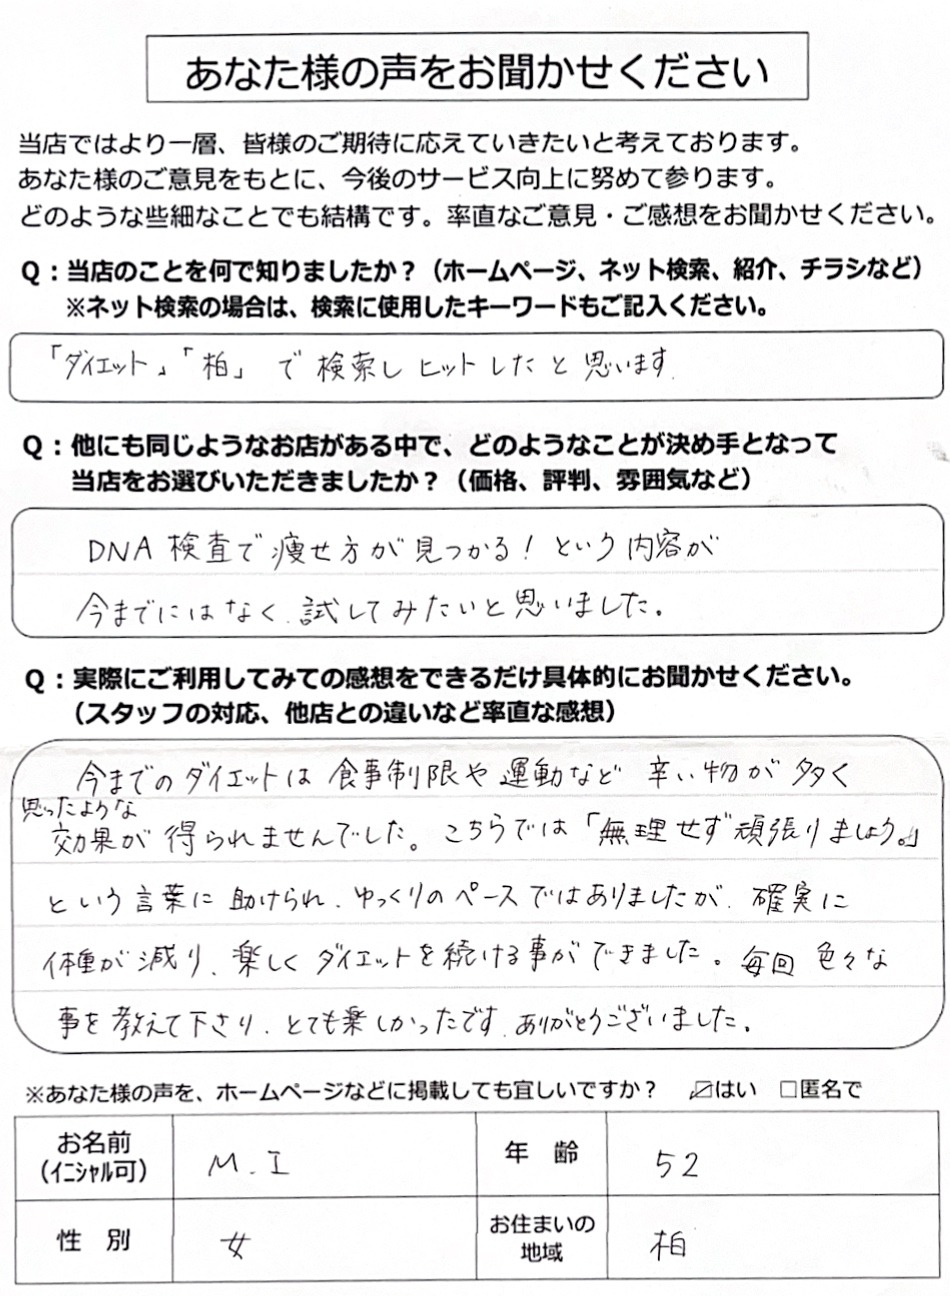 あなた様の声をお聞かせください
当店ではより一層、皆様のご期待に応えていきたいと考えております。
あなた様のご意見をもとに、今後のサービス向上に努めて参ります。
どのような些細なことでも結構です。率直なご意見・ご感想をお聞かせください。
Q：当店のことを何で知りましたか？（ホームページ、ネット検索、紹介、チラシなど）
※ネット検索の場合は、検索に使用したキーワードもご記入ください。
「ダイエット」「柏」で検索しヒットしたと思います.
Q：他にも同じようなお店がある中で、どのようなことが決め手となって
当店をお選びいただきましたか？（価格、評判、雰囲気など）
DNA検査で痩せ方が見つかる！という内容が
今までにはなく、試してみたいと思いました。
Q：実際にご利用してみての感想をできるだけ具体的にお聞かせください。
（スタッフの対応、他店との違いなど率直な感想）
今までのダイエットは食事制限や運動など辛い物が多く
思ったような
効果が得られませんでした。こちらでは「無理せず頑張りましょう。」
という言葉に助けられ、ゆっくりのペースではありましたが、確実に
体重が減り、楽しくダイエットを続ける事ができました。毎回色々な
事を教えて下さり、とても楽しかったです。ありがとうございました。
※あなた様の声を、ホームページなどに掲載しても宜しいですか？ ☑はい □匿名で
お名前 M.I 年 齢 52
（イニシャル可）
性 別 女 お住まいの 柏
地域